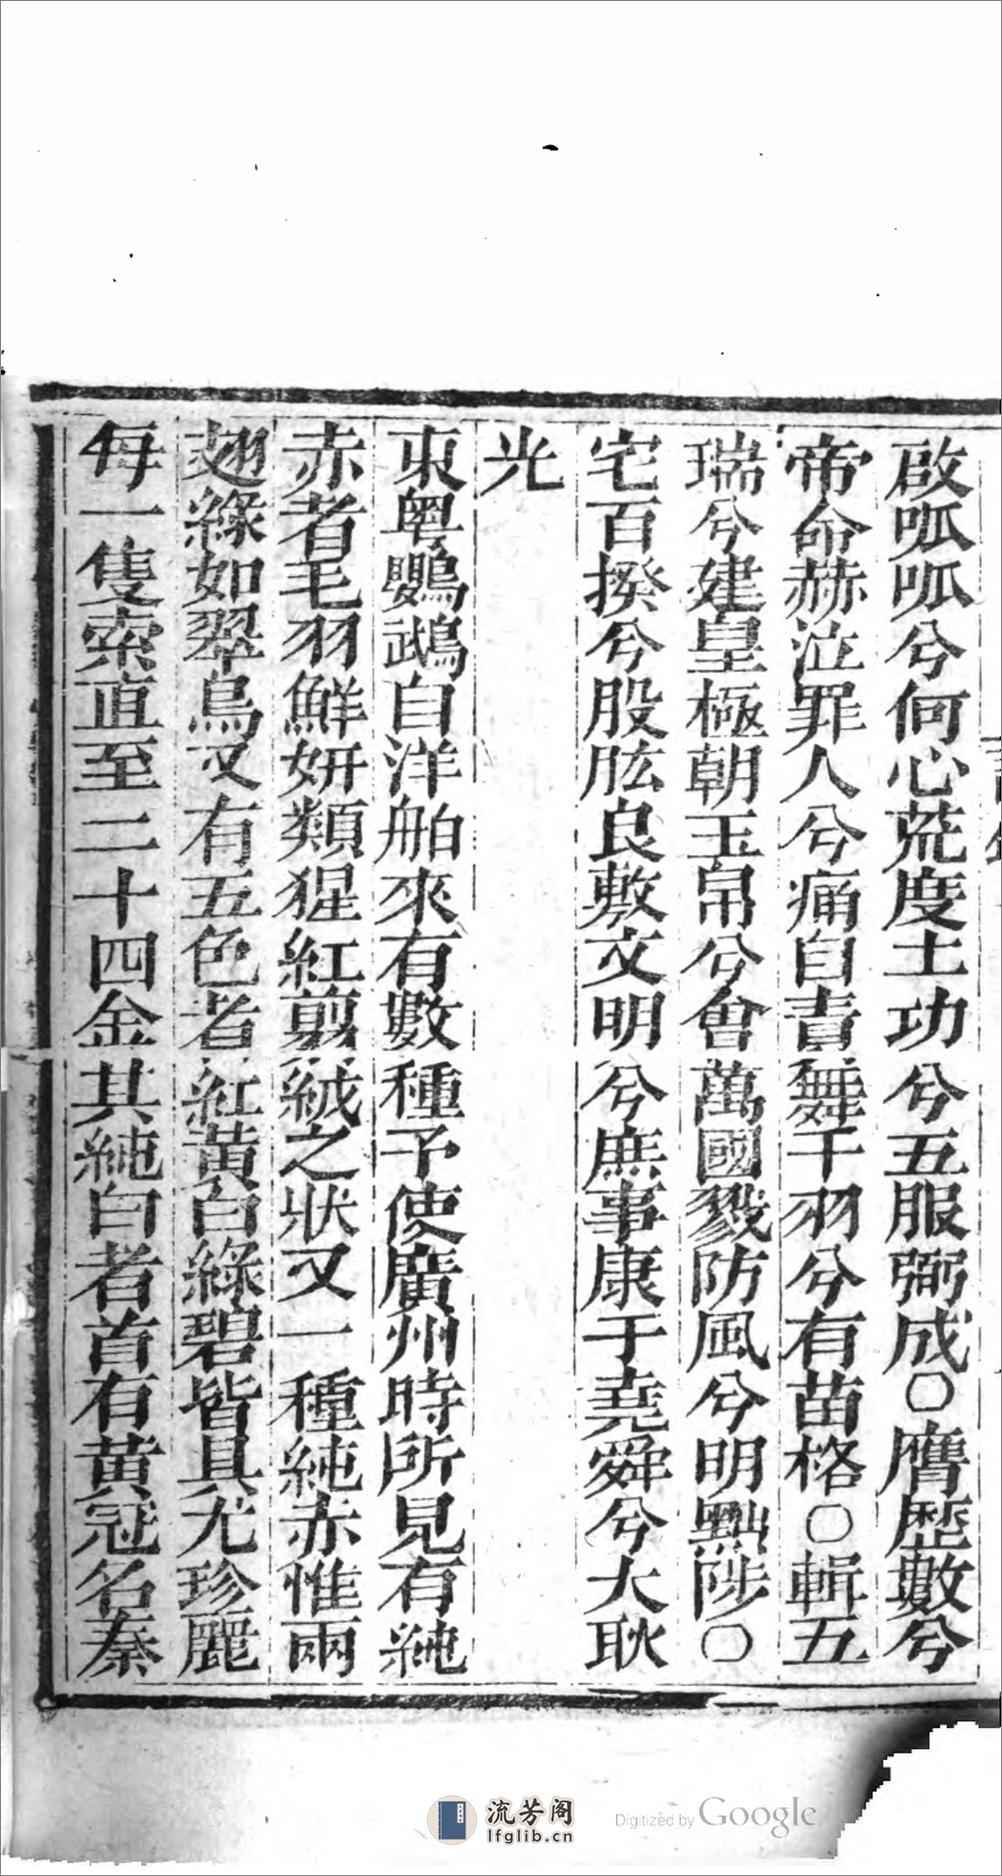 啟呱呱兮何心荒度土功兮五服弼成〇膺歷數兮
帝命赫泣罪人兮痛自責舞干羽兮有苗格〇輯五
瑞兮建皇極朝玉帛兮會萬國戮防風兮明黜陟〇
宅百揆兮股肱良敷文明兮庶事康于堯舜兮大耿
光
東粵鸚鵡自洋舶來有數種予使廣州時所見有純
赤者毛羽鮮妍類猩紅剪絨之狀又一種純赤惟兩
翅綠如翠鳥又有五色者紅黃白綠碧皆具尤珍麗
每一隻索直至二十四金其純白者首有黃冠名秦
流芳阁
lfglib.cn
Digitized by Google